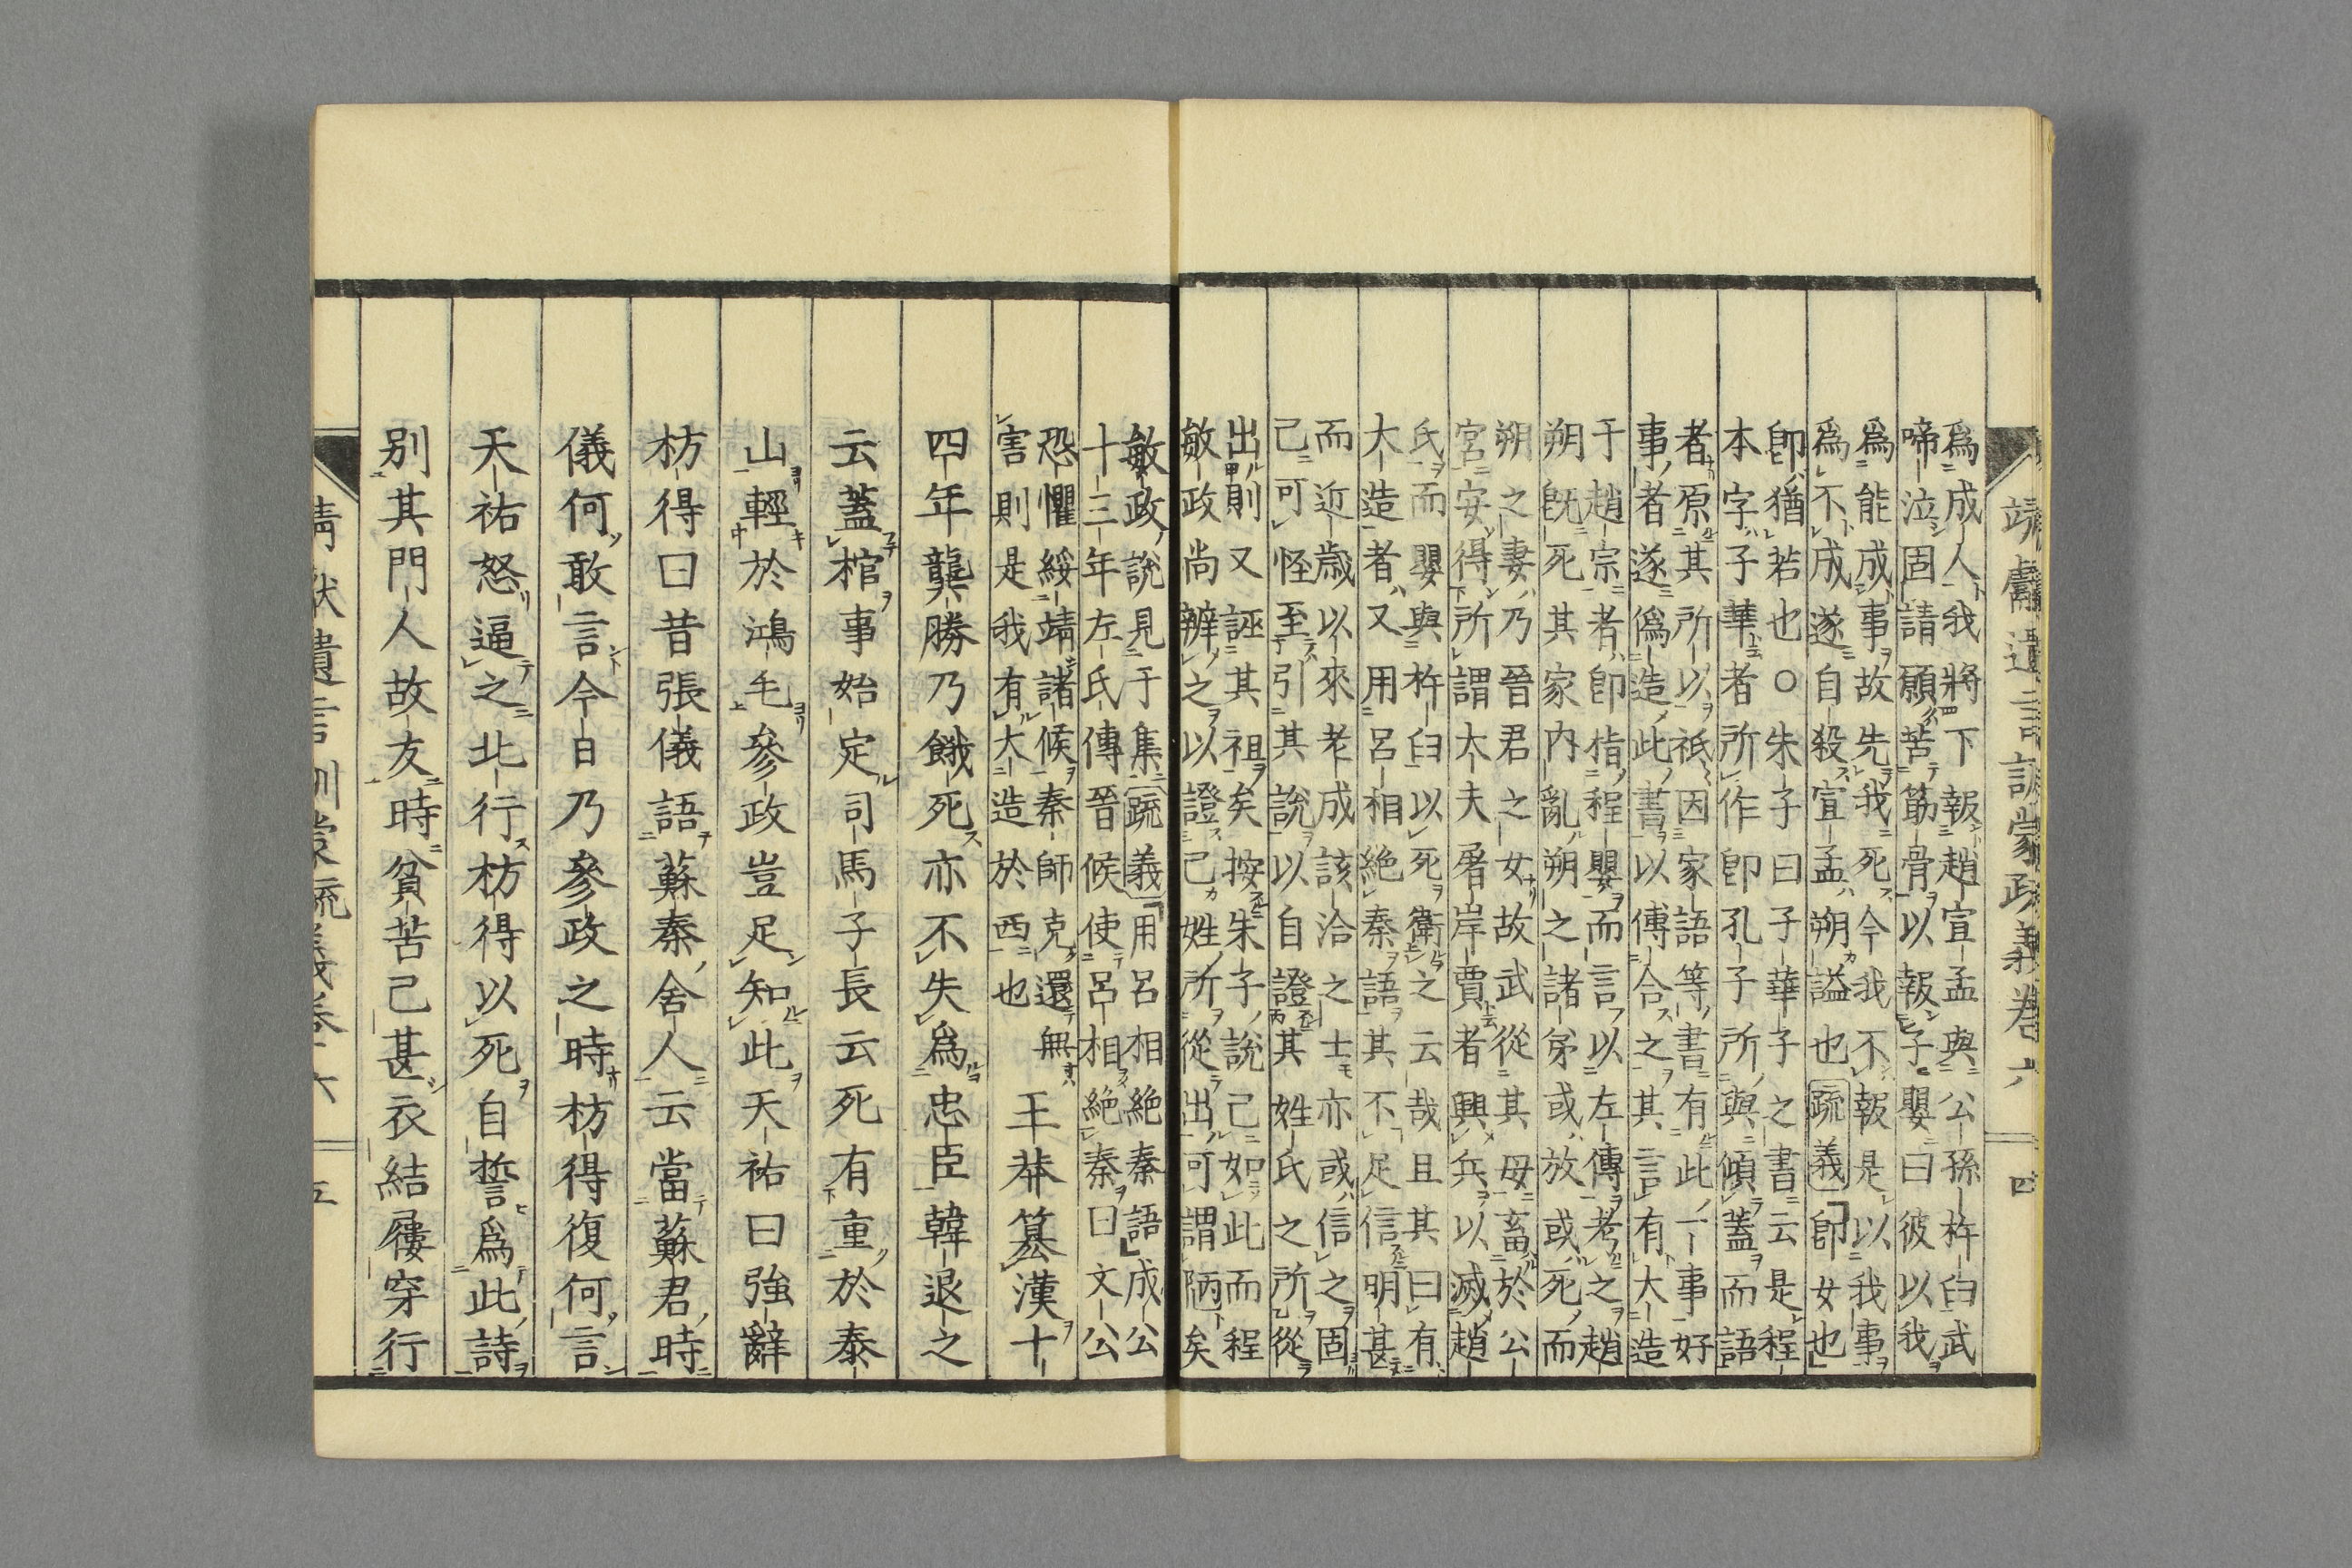 靖獻遺言訓蒙疏義卷六　四
爲成人我將下報趙宣孟與公孫杵臼武
啼泣固請願苦筋骨以報子嬰曰彼以我
爲能成事故先我死今我不報是以我事
爲不成遂自殺宣孟朔謚也疏義卽女也
卽猶若也○朱子曰子華子之書云是程
本字子華者所作卽孔子所與傾蓋而語
者原其所以祇因家語等書有此一事好
事者遂僞造此書以傳合之其言有大造
于趙宗者卽指程嬰而言以左傳考之趙
朔旣死其家內亂朔之諸弟或放或死而
朔之妻乃晉君之女故武從其母畜於公
宮安得所謂大夫屠岸賈者興兵以滅趙
氏而嬰與杵臼以死衛之云哉且其曰有
大造者又用呂相絕秦語其不足信明甚
而近歲以來老成該洽之士亦或信之固
己可怪至引其說以自證其姓氏之所從
出則又誣其祖矣按朱子說己如此而程
敏政尚辨之以證己姓所從出可謂陋矣
敏政說見于集疏義用呂相絕秦語成公
十三年左氏傳晉候使呂相絕秦曰文公
恐懼綏靖諸候秦師克還無
害則是我有大造於西也
王莽篡漢十
四年龔勝乃餓死亦不失爲忠臣韓退之
云蓋棺事始定司馬子長云死有重於泰
山輕於鴻毛參政豈足知此天祐曰強辭
枋得曰昔張儀語蘇秦舍人云當蘇君時
儀何敢言今日乃參政之時枋得復何言
天祐怒逼之北行枋得以死自誓爲此詩
別其門人故友時貧苦己甚衣結屨穿行
靖獻遺言訓蒙疏義卷六　五